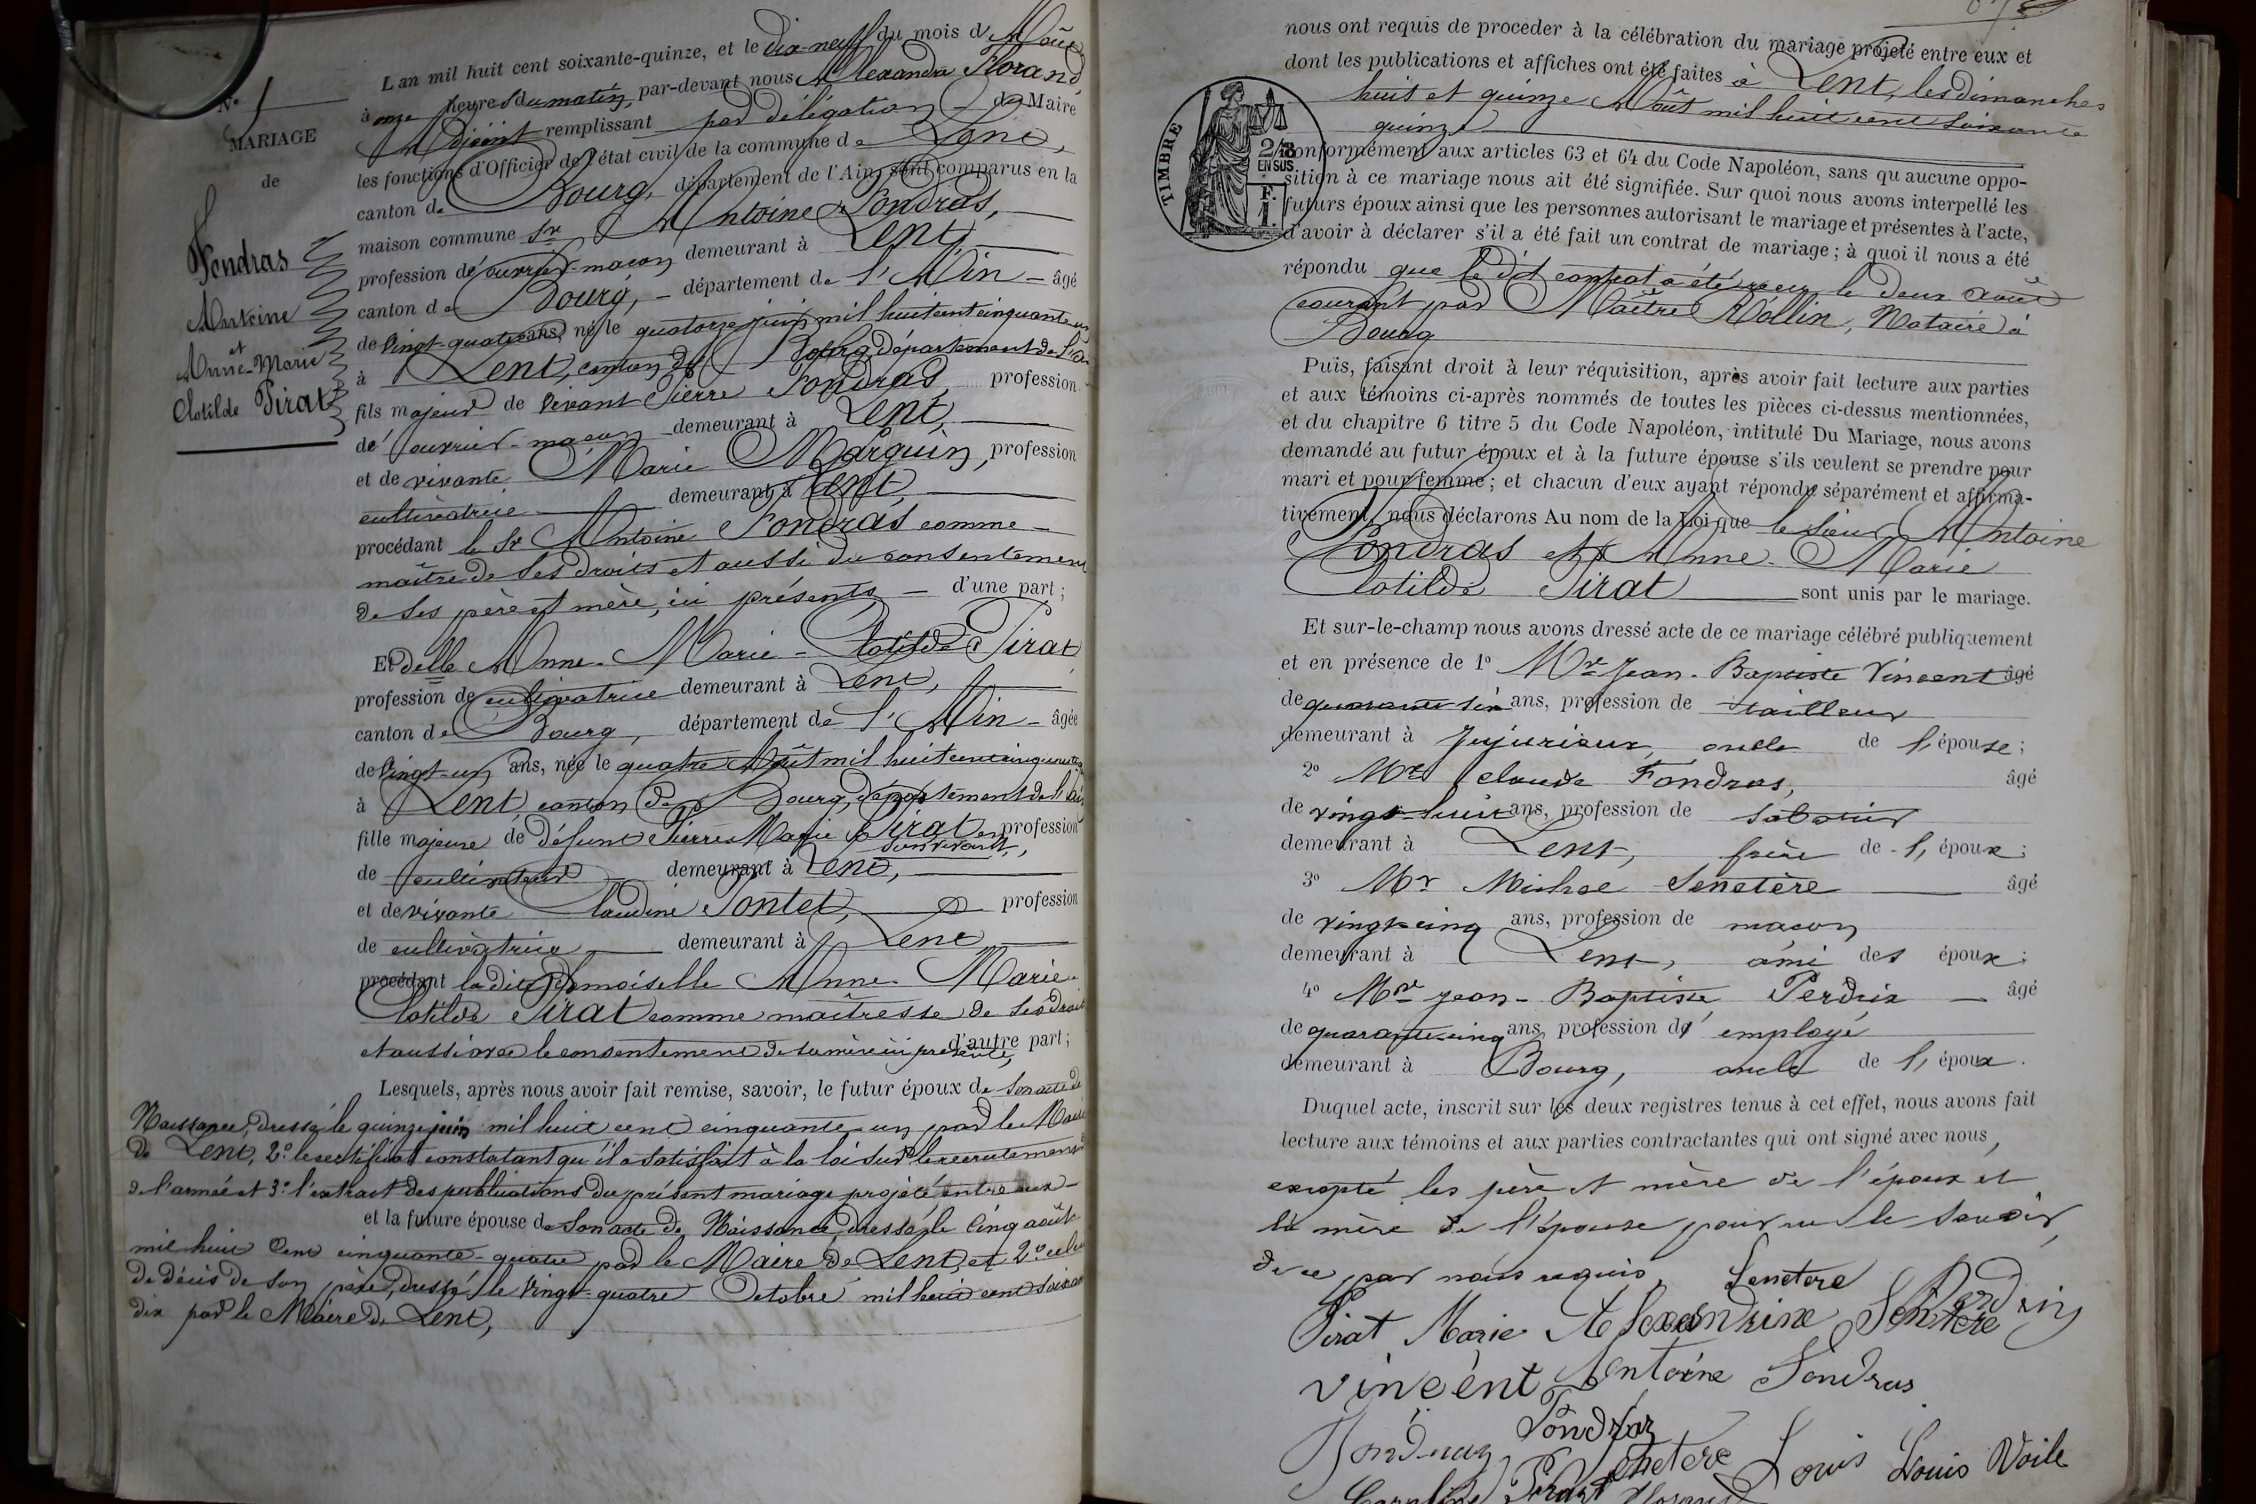 N° 5
MARIAGE
de
Fondras
Antoine
et
Anne-Marie
Clotilde Pirat
L'an mil huit cent soixante-quinze, et le dix-neuf du mois d'Août
à onze heures du matin, par-devant nous Alexandre Morand,
Adjoint remplissant par délégation du Maire
les fonctions d'Officier de l'état civil de la commune de Lent,
canton de Bourg, département de l'Ain, sont comparus en la
maison commune Sr Antoine Fondras,
profession d'ouvrier-maçon demeurant à Lent,
canton de Bourg, département de l'Ain âgé
de vingt-quatre ans, né le quatorze juin mil huit cent cinquante un
à Lent, canton de Bourg, département de l'Ain
fils majeur de vivant Pierre Fondras, profession
d'ouvrier-maçon demeurant à Lent,
et de vivante Marie Marguin, profession
cultivatrice demeurant à Lent,
procédant le Sr Antoine Fondras comme
maître de ses droits et aussi du consentement
de ses père et mère, ici présents d'une part;
Et delle Anne-Marie-Clotilde Pirat
profession de cultivatrice demeurant à Lent,
canton de Bourg, département de l'Ain âgée
de vingt-un ans, née le quatre Août mil huit cent cinquante quatre
à Lent, canton de Bourg, département de l'Ain
fille majeure de défunt Pierre Marie Pirat en profession
son vivant,
de cultivateur demeurant à Lent,
et de vivante Claudine Pontet, profession
de cultivatrice demeurant à Lent
procédant la dite demoiselle Anne-Marie-
Clotilde Pirat comme maîtresse de ses droits
et aussi avec le consentement de sa mère ici présente, d'autre part;
Lesquels, après nous avoir fait remise, savoir, le futur époux de son acte de
Naissance, dressé le quinze juin mil huit cent cinquante-un par le Maire
de Lent, 2° le certificat constatant qu'il a satisfait à la loi sur le recrutement
de l'armée et 3° l'extrait des publications du présent mariage projeté entre eux
et la future épouse de son acte de Naissance, dressé le cinq août
mil huit cent cinquante-quatre par le Maire de Lent, et 2° celui
de décès de son père, dressé le vingt-quatre Octobre mil huit cent soixante
dix par le Maire de Lent,
nous ont requis de procéder à la célébration du mariage projeté entre eux et
dont les publications et affiches ont été faites à Lent, les dimanches
huit et quinze Août mil huit cent soixante
quinze
TIMBRE
2/10
EN SUS
F.
1.
conformément aux articles 63 et 64 du Code Napoléon, sans qu'aucune oppo-
sition à ce mariage nous ait été signifiée. Sur quoi nous avons interpellé les
futurs époux ainsi que les personnes autorisant le mariage et présentes à l'acte,
d'avoir à déclarer s'il a été fait un contrat de mariage; à quoi il nous a été
répondu que le dit contrat a été reçu le deux août
courant par Maître Rollin, Notaire à
Bourg
Puis, faisant droit à leur réquisition, après avoir fait lecture aux parties
et aux témoins ci-après nommés de toutes les pièces ci-dessus mentionnées,
et du chapitre 6 titre 5 du Code Napoléon, intitulé Du Mariage, nous avons
demandé au futur époux et à la future épouse s'ils veulent se prendre pour
mari et pour femme; et chacun d'eux ayant répondu séparément et affirma-
tivement, nous déclarons Au nom de la Loi que le sieur Antoine
Fondras et Anne-Marie
Clotilde Pirat sont unis par le mariage.
Et sur-le-champ nous avons dressé acte de ce mariage célébré publiquement
et en présence de 1° Mr Jean-Baptiste Vincent âgé
de quarante six ans, profession de tailleur
demeurant à Jujurieux, oncle de l'épouse;
2° Mr Claude Fondras, âgé
de vingt-huit ans, profession de sabotier
demeurant à Lent, frère de l'époux;
3° Mr Michel Senetère âgé
de vingt-cinq ans, profession de maçon
demeurant à Lent, ami des époux;
4° Mr Jean-Baptiste Perdrix âgé
de quarante-cinq ans, profession d'employé
demeurant à Bourg, oncle de l'époux.
Duquel acte, inscrit sur les deux registres tenus à cet effet, nous avons fait
lecture aux témoins et aux parties contractantes qui ont signé avec nous,
excepté les père et mère de l'époux et
la mère de l'épouse pour ne le savoir,
de ce par nous requis,
Senetere
Perdrix
Pirat Marie Alexandrine Senetere
Vincent Antoine Fondras
Fondras
Fondras
Senetere Louis Louis Voile
Caroline Pirat Morand